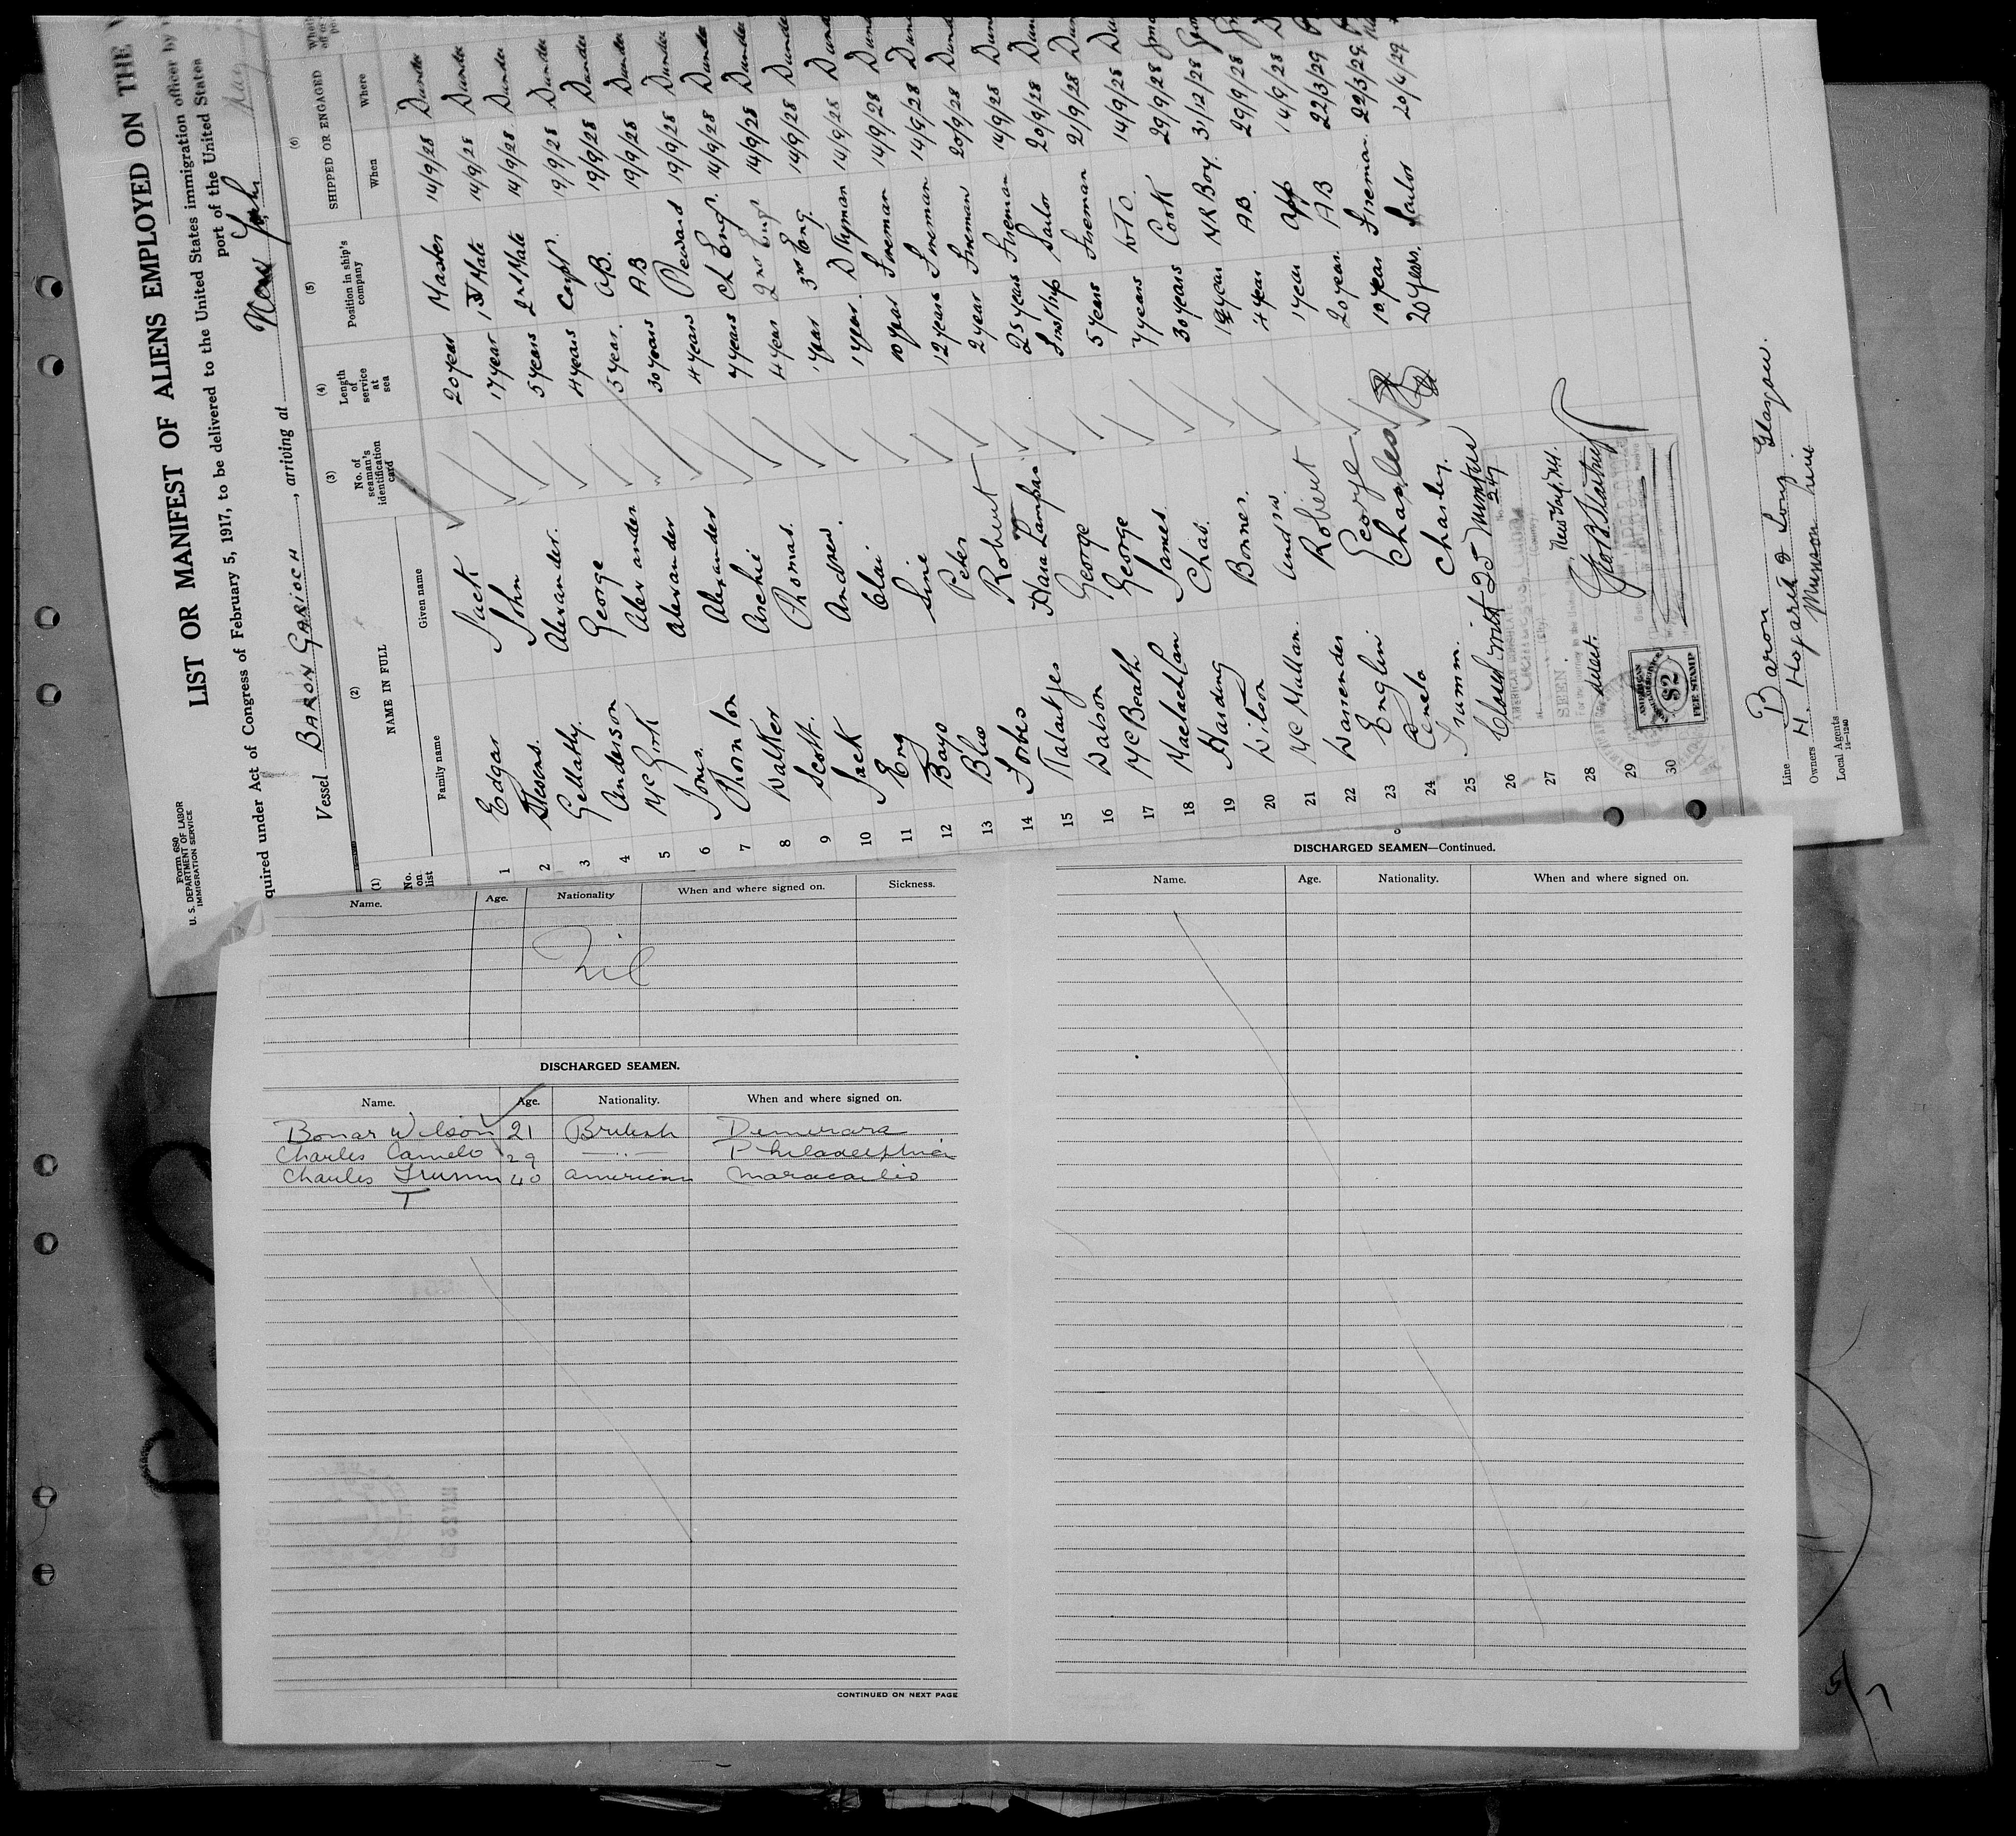 Form 680
U. S. DEPARTMENT OF LABOR
IMMIGRATION SERVICE
LIST OR MANIFEST OF ALIENS EMPLOYED ON THE
quired under Act of Congress of February 5, 1917, to be delivered to the United States immigration officer by
port of the United States
Vessel BARON GARIOCH, arriving at New York
(1) (2) (3) (4) (5) (6)
No. on list
NAME IN FULL
Family name Given name
No. of seaman's identification card
Length of service at sea
Position in ship's company
SHIPPED OR ENGAGED
When Where
1 Edgar Jack 20 year Master 14/9/28 Dundee
2 Stevens. John 17 year 1st Mate 14/9/28 Dundee
3 Gellatly. Alexander. 5 years 2nd Mate 14/9/28 Dundee
4 Anderson George 4 years Carptr. 19/9/28 Dundee
5 McGirk Alexander 5 year. A.B. 19/9/28 Dundee
6 Alexander 30 years AB 19/9/28 Dundee
7 Thornton Alexander 4 years 19/9/28 Dundee
8 Walker Archie 7 years Ch Engr. 14/9/28 Dundee
9 Scott. Thomas. 4 year 2nd Engr 14/9/28 Dundee
10 Jack Andrew. 1 year 3rd Eng. 14/9/28
11 Eng 1 year. 14/9/28
12 Bayo 10 year Fireman 14/9/28
13 Blue Peter 12 years Fireman 14/9/28
14 Robert 2 year Fireman 20/9/28
15 25 years Fireman 14/9/28
16 Watson George Sailor 20/9/28
17 McBeath George 5 years Fireman 21/9/28
18 Maclachlan James 7 years W.T.O. 14/9/28
19 Harding Chas. 30 years Cook 29/9/28
20 Wilson Bonner. year M.R. Boy. 31/12/28
21 McMullan. Andrw. 4 year AB. 29/9/28
22 Warrender Robert 1 year App 14/9/28
23 English George 20 year. AB 22/3/29
24 Charles 10 year Fireman. 22/3/29
25 Trumm. Charley. 20 years. Sailor 20/4/29
26 Closed with 25
27
28
29
30
SEEN
New York
AMERICAN
$2
FEE STAMP
Line Baron
Owners H. Hogarth & Sons Glasgow.
Local Agents Munson Line
14—1240
Name. Age. Nationality When and where signed on. Sickness.
Nil
DISCHARGED SEAMEN.
Name. Age. Nationality. When and where signed on.
Bonar Wilson 21 British Demerara
Charles Camelo 29 —"— Philadelphia
Charles Trumm 40 American Maracaibo
T
CONTINUED ON NEXT PAGE
DISCHARGED SEAMEN—Continued.
Name. Age. Nationality. When and where signed on.